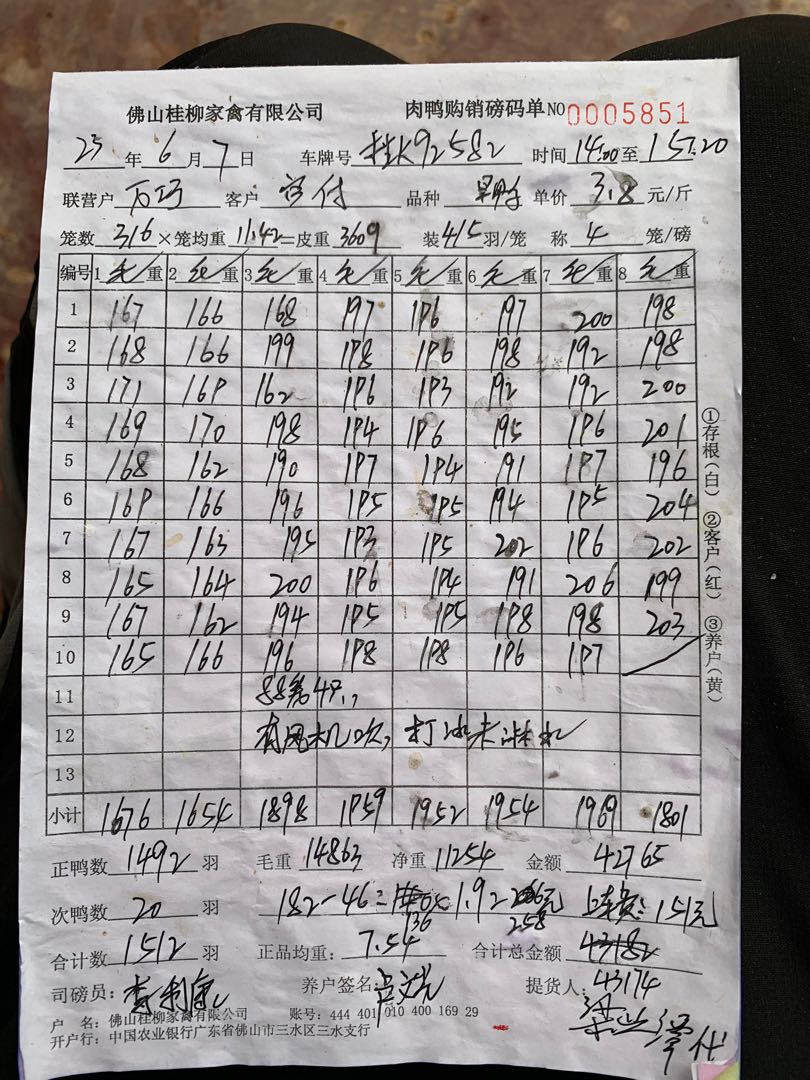 佛山桂柳家禽有限公司 肉鸭购销磅码单 NO 0005851
23 年 6 月 7 日 车牌号 桂K92582 时间 14:00 至 15:20
联营户 客户 品种 单价 3.8 元/斤
笼数 316 ×笼均重 11.42 =皮重 3609 装 4/5 羽/笼 称 4 笼/磅
编号 1 毛重 2 毛重 3 毛重 4 毛重 5 毛重 6 毛重 7 毛重 8 毛重
1 167 166 168 197 196 197 200 198
2 168 166 199 198 196 198 192 198
3 171 169 162 196 193 192 192 200
4 169 170 198 194 196 195 196 201
5 168 162 190 197 194 191 197 196
6 169 166 196 195 195 194 195 204
7 167 163 195 193 195 202 196 202
8 165 164 200 196 194 191 206 199
9 167 162 194 195 195 198 198 203
10 165 166 196 198 198 196 197
11 88笼4只
12 有风机吹, 打冰未淋水
13
小计 1676 1654 1898 1959 1952 1954 1969 1801
正鸭数 1492 羽 毛重 14863 净重 11254 金额 42765
次鸭数 20 羽 182-46= 136 1.92 258 151元
合计数 1512 羽 正品均重: 7.54 合计总金额 43182
43174
司磅员: 养户签名 提货人:
户 名: 佛山桂柳家禽有限公司 账号: 444 401 010 400 169 29
开户行: 中国农业银行广东省佛山市三水区三水支行
①存根(白) ②客户(红) ③养户(黄)